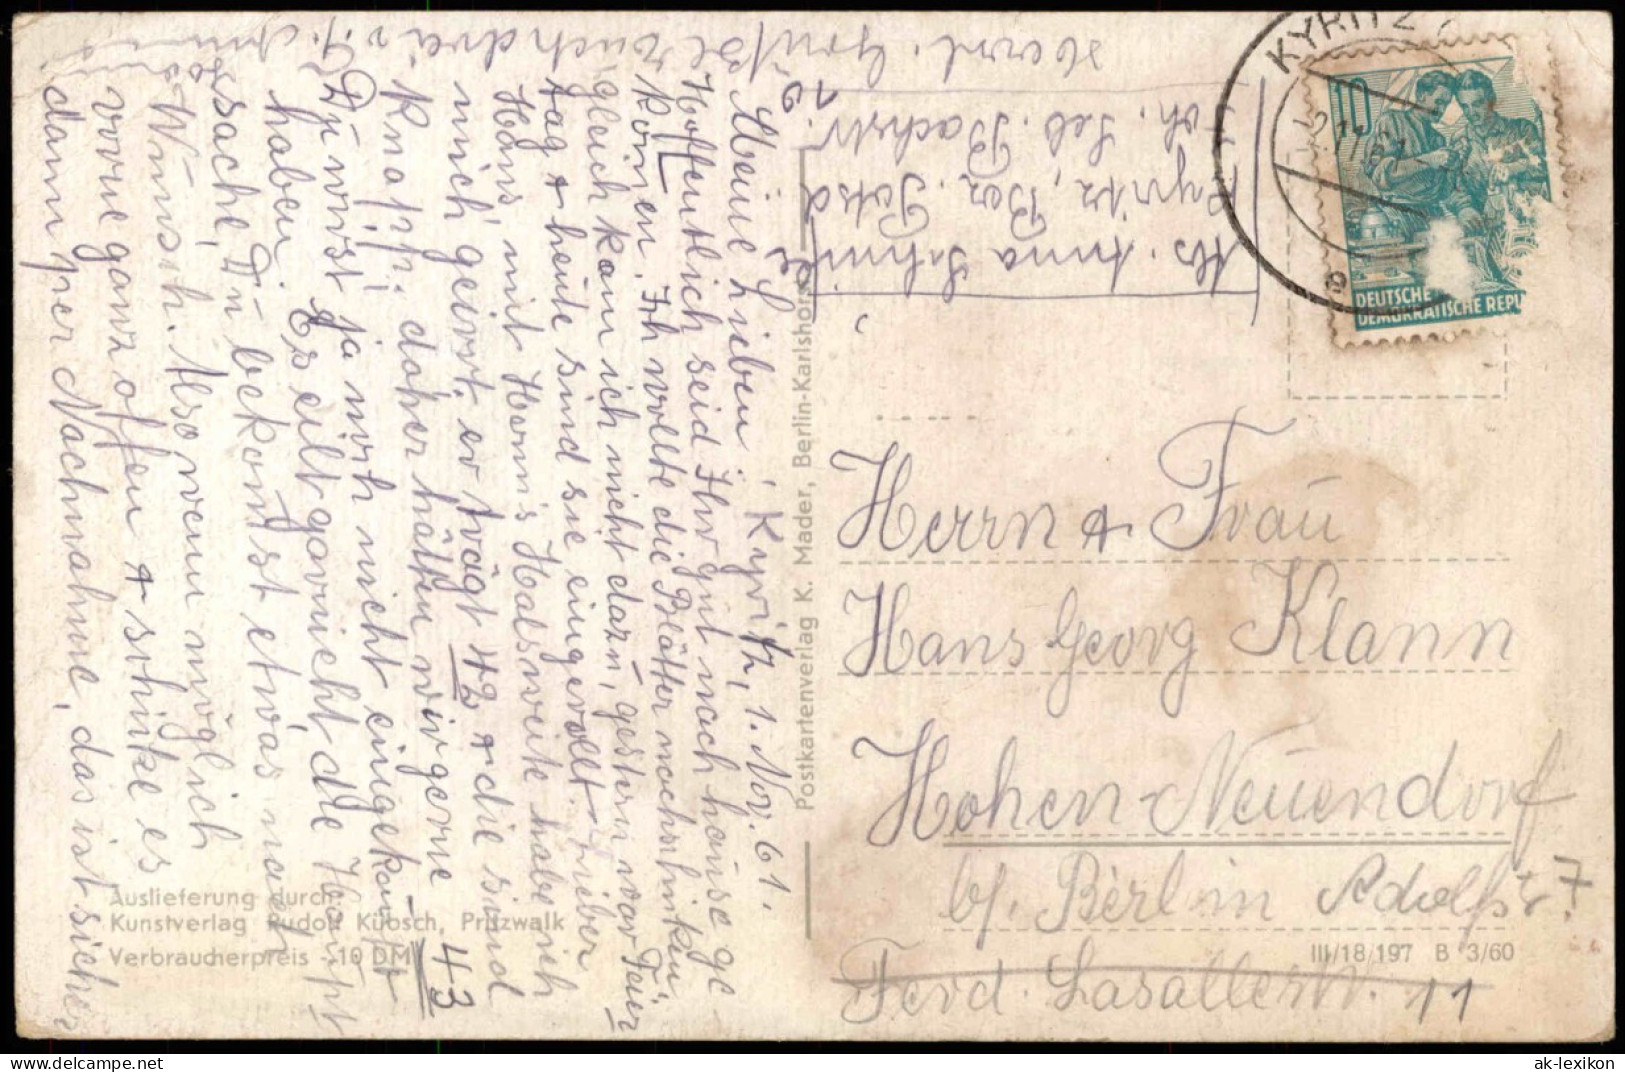 Kyritz, 1. Nov. 61.
Meine Lieben!
Hoffentlich seid Ihr gut nach hause ge
komen. Ich wollte die Blätter nachschicken
gleich kam ich nicht dazu, gestern war Feier
tag + heute sind sie eingerollt. Lieber
Hans, mit Hermis Halsweite habe ich
mich geirrt, er trägt 42 + die sind
knapp, daher hätten wir gerne 43
Du wirst ja nicht eingekauft
haben. Es eilt garnicht die Haupt
sache, Du bekomst etwas nach
Wunsch. Also wenn möglich
vorne ganz offen + schicke es
dann per Nachnahme, das ist sicher
Herzl. Grüße Euch drei v.
Abs. Anna
Kyritz, Bez. Potsd
Joh. Seb. Bachstr.
16
KYRITZ
2.11.61
e
10
DEUTSCHE
DEMOKRATISCHE REPU
Herrn + Frau
Hans Georg Klann
Hohen-Neuendorf
b/. Berlin Adolfstr 7.
Ferd. Lasallestr. 11
Postkartenverlag K. Mader, Berlin-Karlshorst
Auslieferung durch:
Kunstverlag Rudolf Kubsch, Pritzwalk
Verbraucherpreis -,10 DM
III/18/197 B 3/60
ak-lexikon